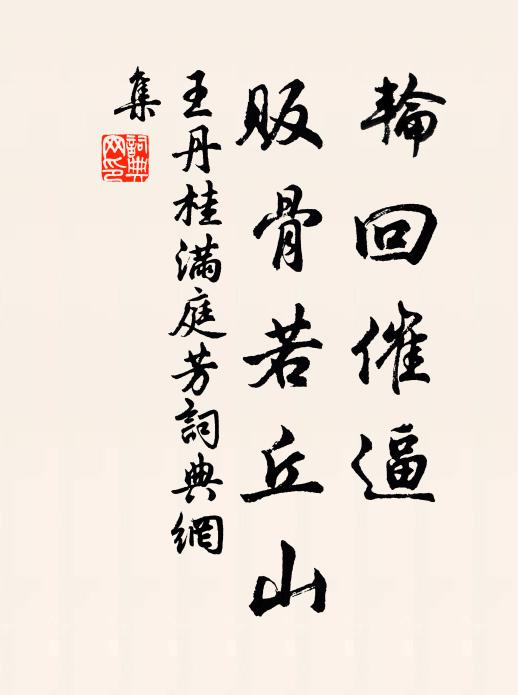 輪回催逼
販骨若丘山
王丹桂滿庭芳詞典網
集
詞典
网印